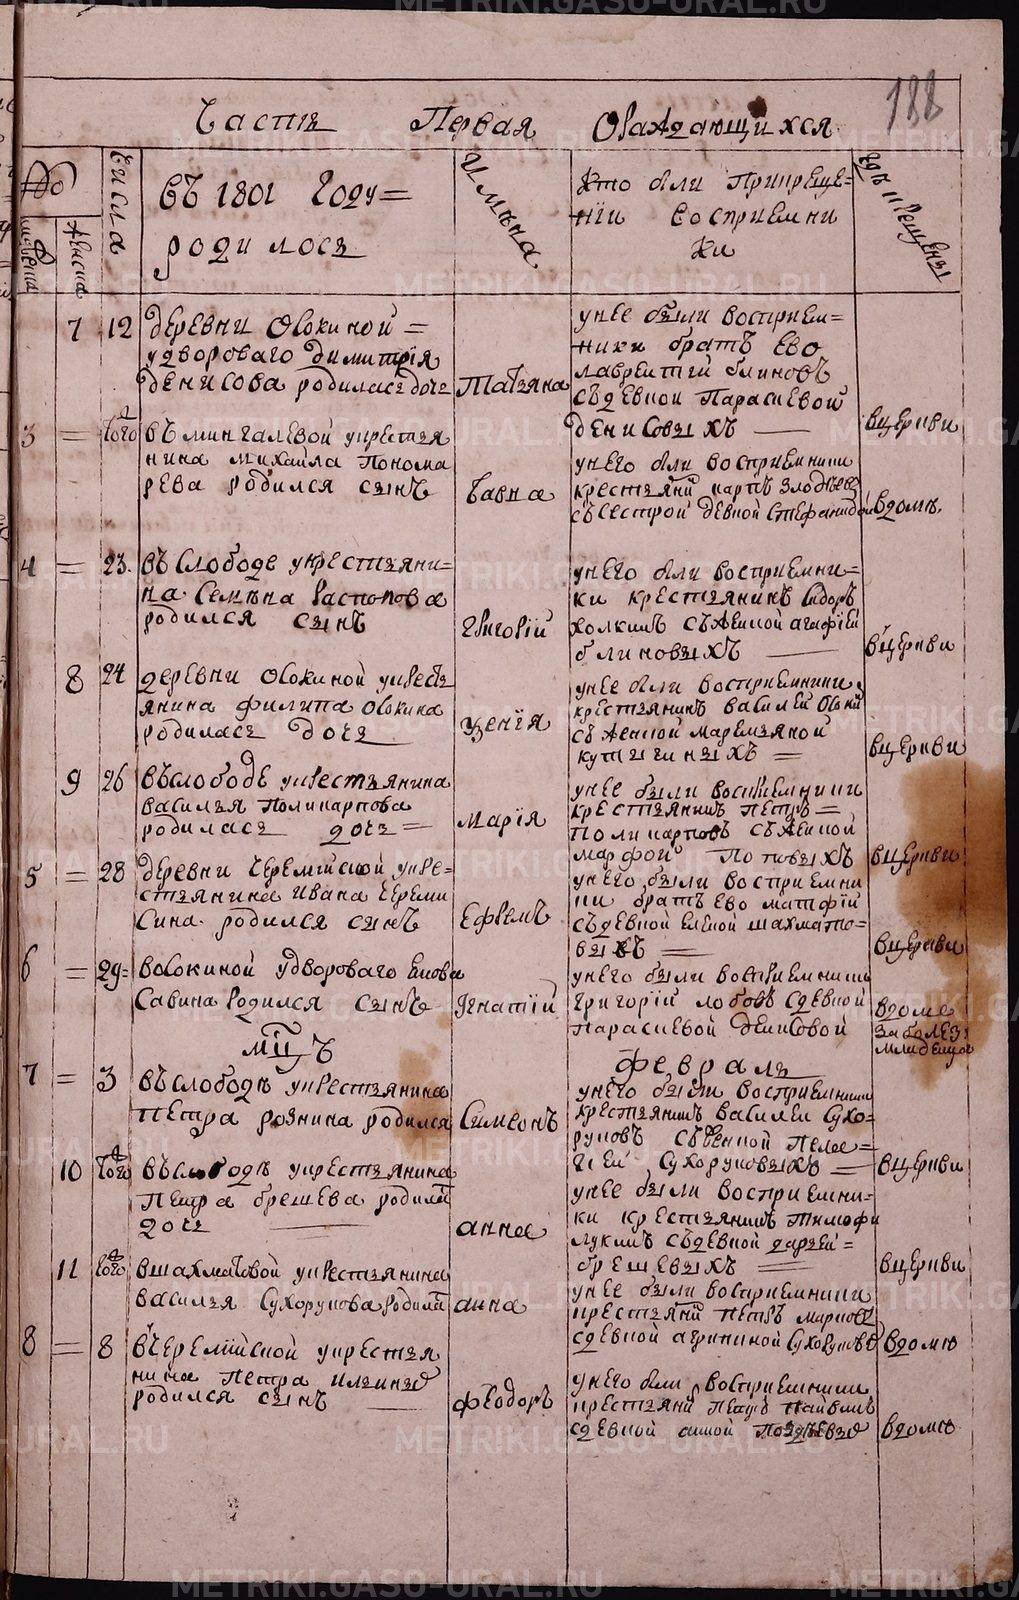 188
Часть Первая Ораждающихся
Числа
въ 1801 году =
родилось
Имѣна
Кто были Прикреще=
нїи восприемни
ки
гдѣ крещены
7 12 деревни Овокиной =
удвороваго димитрїя
денисова родилась дочь Татьяна
унее были восприем=
ники братъ Ево
лаврентїй блиновъ
съ девкой Парасковеой
денисовыхъ — вцеркви
3 = того въ мингалевой укрестья
нина михайла Понома
рева родился сынъ Савва
унего были восприемники
крестьянї карпъ Злодѣевъ
съ сестрой девкой Стефанидой вдомѣ.
4 = 23. въ Слободе укрестьяни=
на Семѣна Распопова
родился сынъ Григорїй
унего были восприемни=
ки крестьянинъ Сидоръ
холкинъ съ женкой агафїей
блиновыхъ — вцеркви
8 24 деревни Овокиной укресть
янина филипа Овокина
родилась дочь
унее были восприемники
крестьянинъ василей
съ женкой маремьяной
кутыгиныхъ = вцеркви
9 26 въ слободе укрестьянина
василья Поликарпова
родилась дочь = Марїя
унее были восприемники
крестьянинъ петръ =
Поликарповъ съ женкой
марфой Поповыхъ вцеркви
5 = 28 деревни черемїской укре=
стьянина ивана череми
сина родился сынъ Ефремъ
унего были восприемни
ки братъ ево матфїй
съ девкой еленой шахмато=
выхъ = вцеркви
6 = 29= вовокиной удвороваго
Савина родился сынъ Игнатїй
унего были восприемники
григорїй лобовъ сдевкой
парасковеой денисовой вдоме
заболез:
младенца
мцъ Февраль
7 = 3 въ слободѣ укрестьянина
Петра рознина родился Симеонъ
унего были восприемники
крестьянинъ василей Сухо=
руковъ съ женкой пелаге=
ей Сухоруковыхъ — вцеркви
10 того въ слободѣ укрестьянина
петра брещева родилась
дочь — анна
унее были восприемни=
ки крестьянинъ тимофей
лукинъ съ девкой дарьей =
брещевыхъ = вцеркви
11 того вшахматовой укрестьянина
василья Сухорукова родилась анна
унее были восприемники
крестьянї петръ марковъ
сдевкой агрипиной Сухоруковой вдомѣ
8 = 8 въ черемїской укрестья
нина петра ильиныхъ
родился сынъ — Феодоръ
унего были восприемники
крестьянї петръ
сдевкой анной вдомѣ